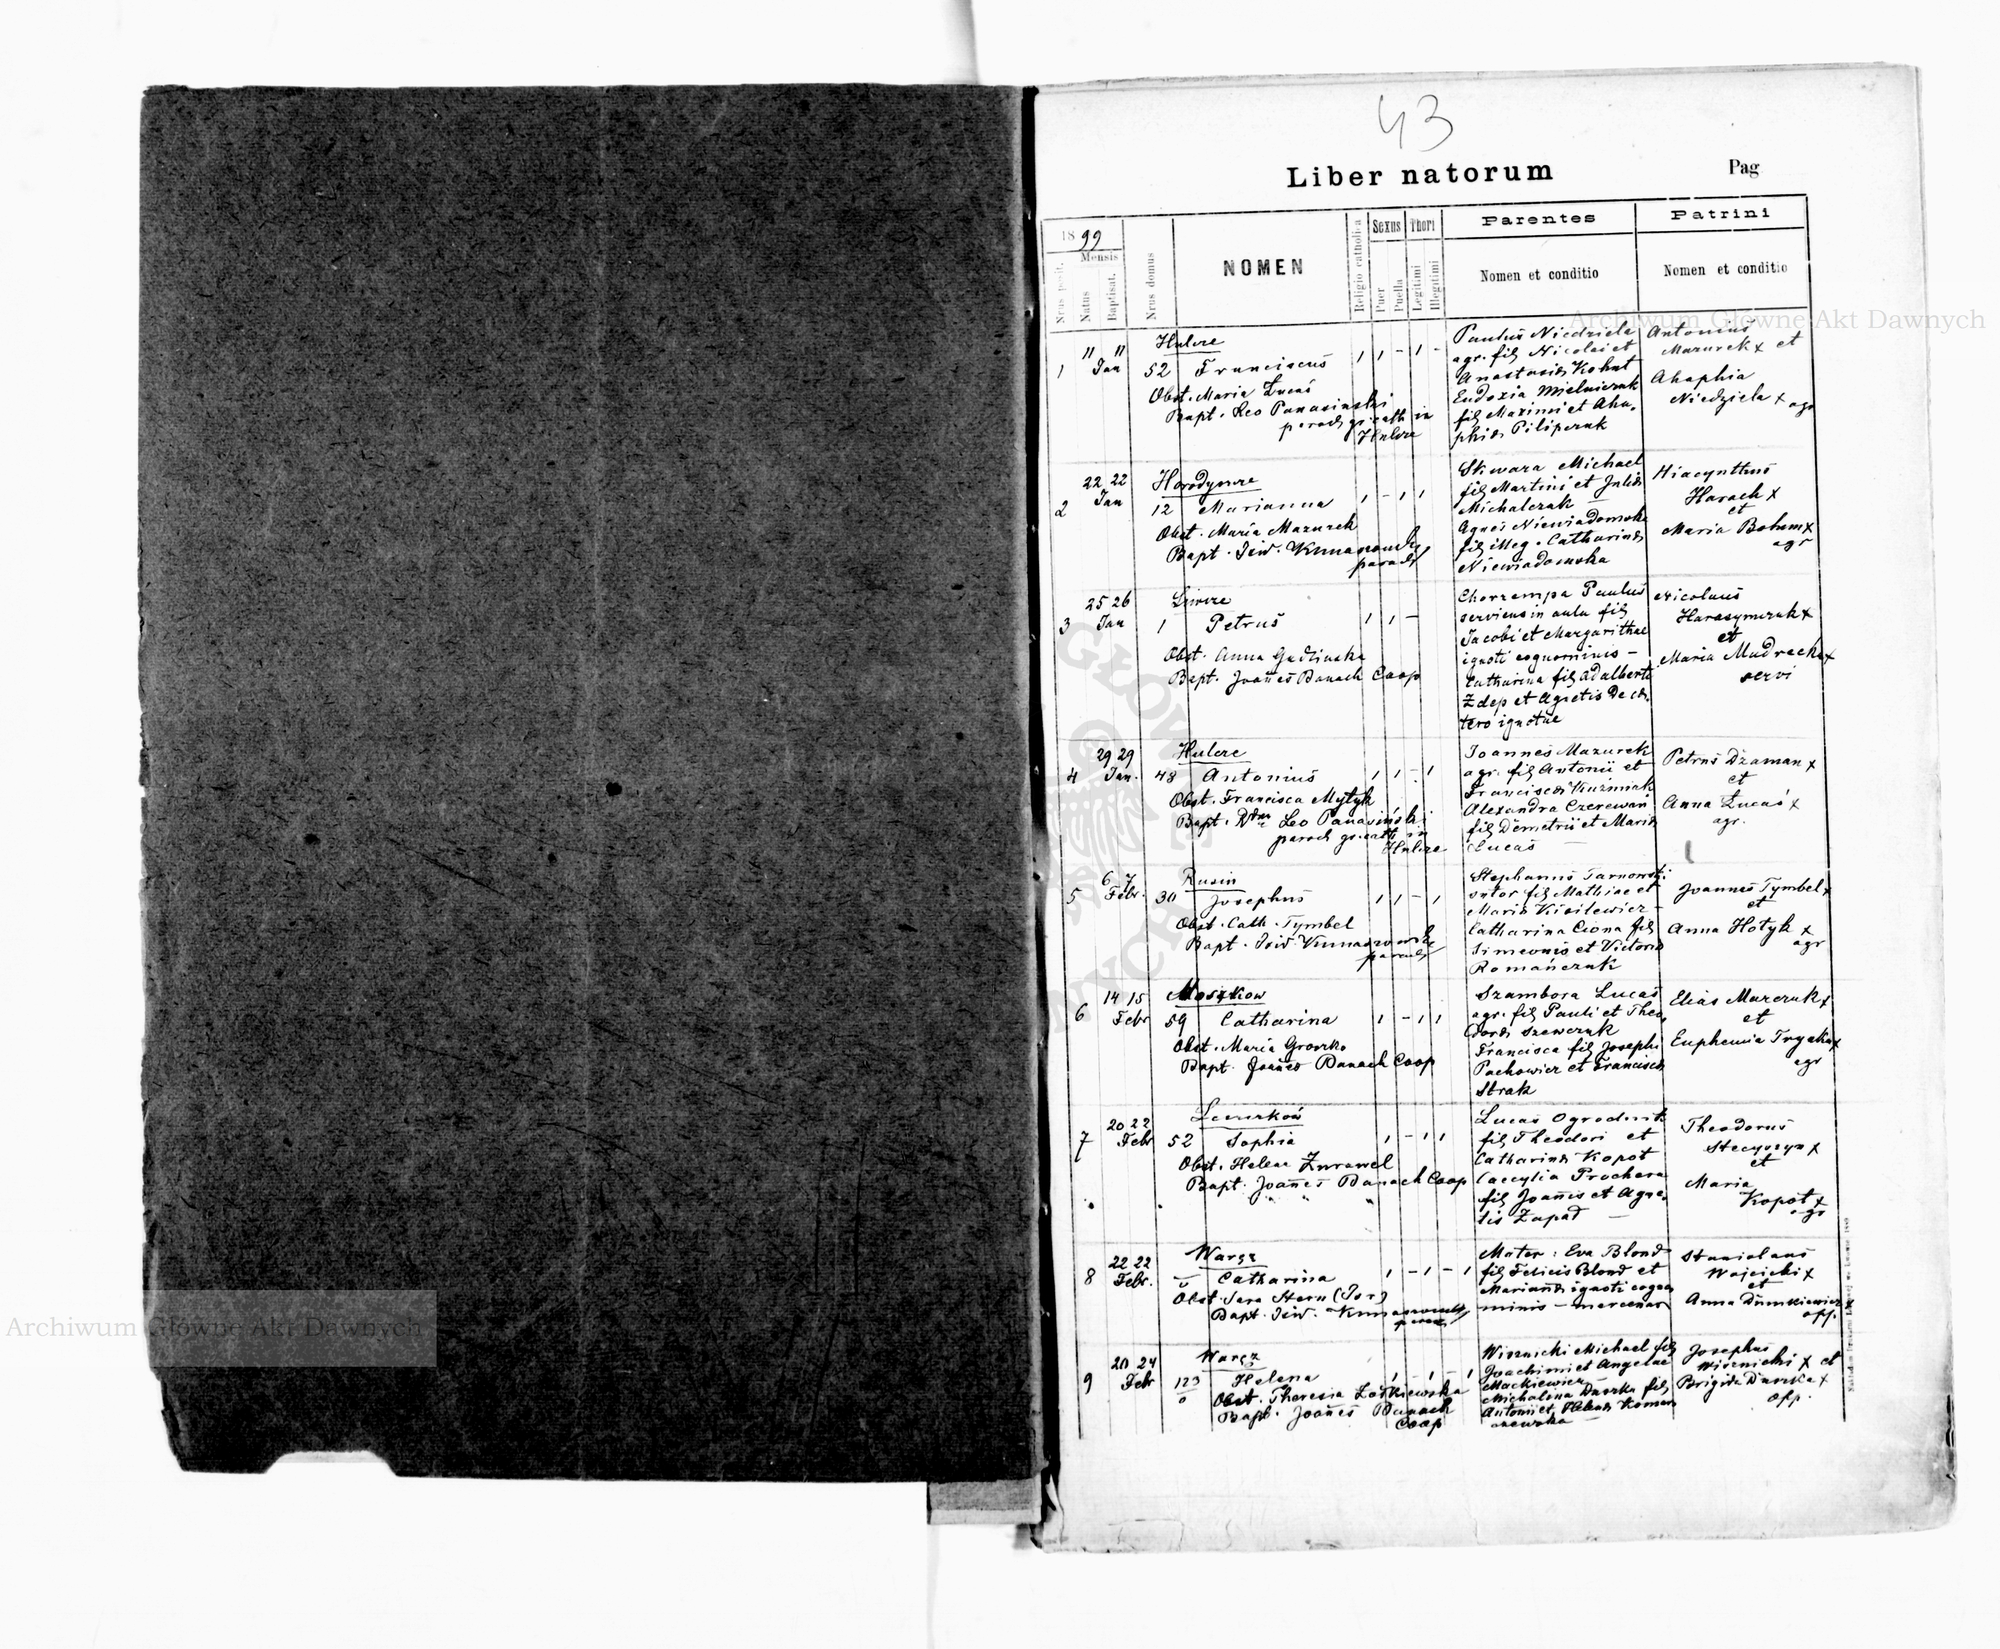 43
Liber natorum
Pag
1899
Mensis
Nrus posit.
Natus
Baptisat.
Nrus domus
NOMEN
Religio catholica
Sexus
Puer
Puella
Thori
Legitimi
Illegitimi
Parentes
Nomen et conditio
Patrini
Nomen et conditio
Archiwum Główne Akt Dawnych
1
11 11
Jan
Hulcze
52 Franciscus
Obst. Maria Łucaś
Bapt. Leo Panasiński
paroch gr. cath in
Hulcze
Paulus Niedziela
agr. fil Nicolai et
Anastasiæ Kohut
Eudoxia Mielniczuk
fil Maximi et Aha-
phiæ Pilipczuk
Antonius
Mazurek x et
Ahaphia
Niedziela x agr
2
22 22
Jan
12 Marianna
Obst. Maria Mazurek
Bapt. Isid.
paroch
Skwara Michael
fil Martini et Juliæ
Michalczuk
Agnes Niewiadomska
fil illeg. Catharinæ
Niewiadomska
Hiacynthus
Harach x
et
Maria x
agr
3
25 26
Jan
Liwcze
1 Petrus
Obst. Anna
Bapt. Joañes Banach Coop
Chorzempa Paulus
serviens in aula fil
Jacobi et Margarithae
ignoti cognominis -
Catharina fil Adalberti
Zdep et Agnetis De ce-
tero ignotae
Nicolaus
Harasymczuk x
et
Maria x
servi
4
29 29
Jan.
Hulcze
48 Antonius
Obst. Francisca Mytyk
Bapt. Leo Panasiński
paroch gr. cath in
Hulcze
Joannes Mazurek
agr. fil Antonii et
Franciscæ Kuźmiak
Alexandra Czerewań
fil Demetrii et Mariæ
Łucaś
Petrus Dżaman x
et
Anna Łucaś x
agr.
5
6 7
Febr.
Rusin
30 Josephus
Obst. Cath. Tymbel
Bapt. Isid.
paroch
Stephanus Tarnowski
sutor fil Mathiae et
Mariæ Kisilewicz -
Catharina Ciona fil
Simeonis et Victoriæ
Romańczuk
Joannes Tymbel x
et
Anna Hotyk x
agr
6
14 15
Febr
Moszkow
59 Catharina
Obst. Maria Groszko
Bapt. Joañes Banach Coop
Szambora Lucas
agr. fil Pauli et Theo
doræ Szewczuk
Francisca fil Josephi
Pachowicz et Franciscæ
Strak
Elias Marczuk x
et
Euphemia x
agr
7
20 22
Febr
52 Sophia
Obst. Helena Żurawel
Bapt. Joañes Banach Coop
Lucas Ogrodnik
fil Theodori et
Catharinæ Kopot
Caecylia Prochera
fil Joannis et Agne-
tis Zapad
Theodorus
Stecyszyn x
et
Maria
Kopot x
agr
8
22 22
Febr.
Waręż
Catharina
Obst. Sara Stern (Isr)
Bapt. Isid.
paroch
Mater: Eva Blond
fil Felicis Blond et
Mariannæ ignoti cogno
minis - mercenar
Stanislaus
Wojcicki x
et
Anna Dumkiewicz x
opp.
9
20 24
Febr
Waręż
123 Helena
Obst. Theresia Żołkiewska
Bapt. Joañes Banach
Coop
Wisznicki Michael fil
Joachimi et Angelae
Mackiewicz
Michalina Duszka fil
Antonii et Helenæ
Josephus
Wisznicki x et
Brigida Duszka x
opp.
Archiwum Główne Akt Dawnych